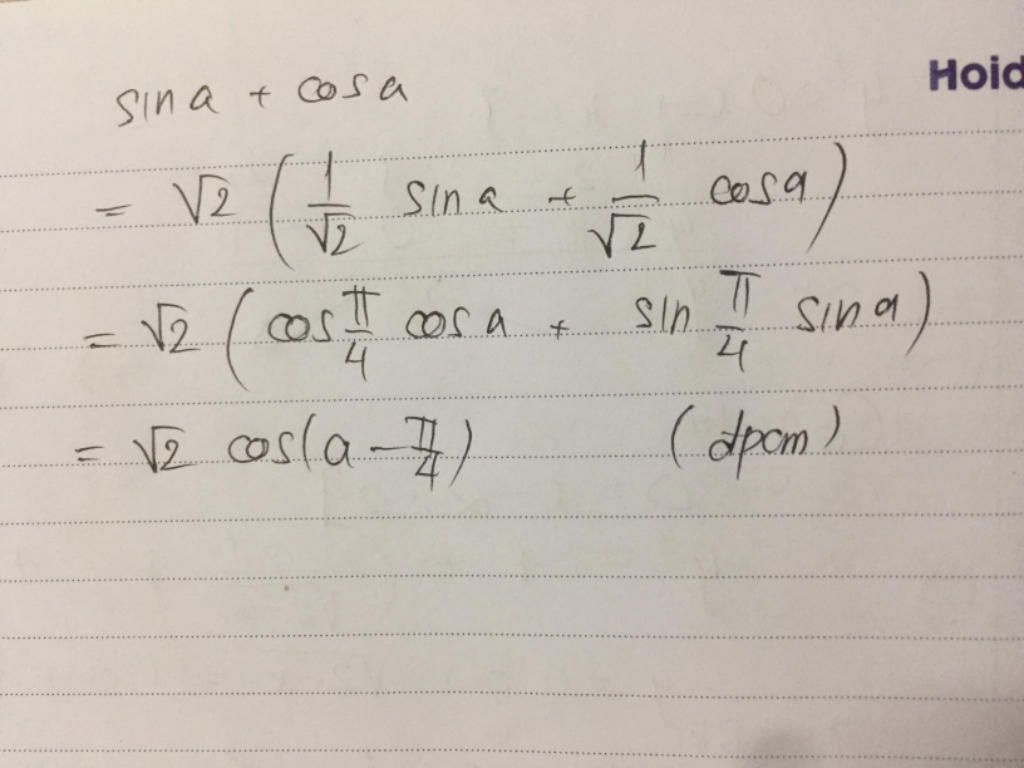 Hoid
sin a + cos a
= √2 ( 1/√2 sin a + 1/√2 cos a )
= √2 ( cos π/4 cos a + sin π/4 sin a )
= √2 cos(a - π/4) (dpcm)